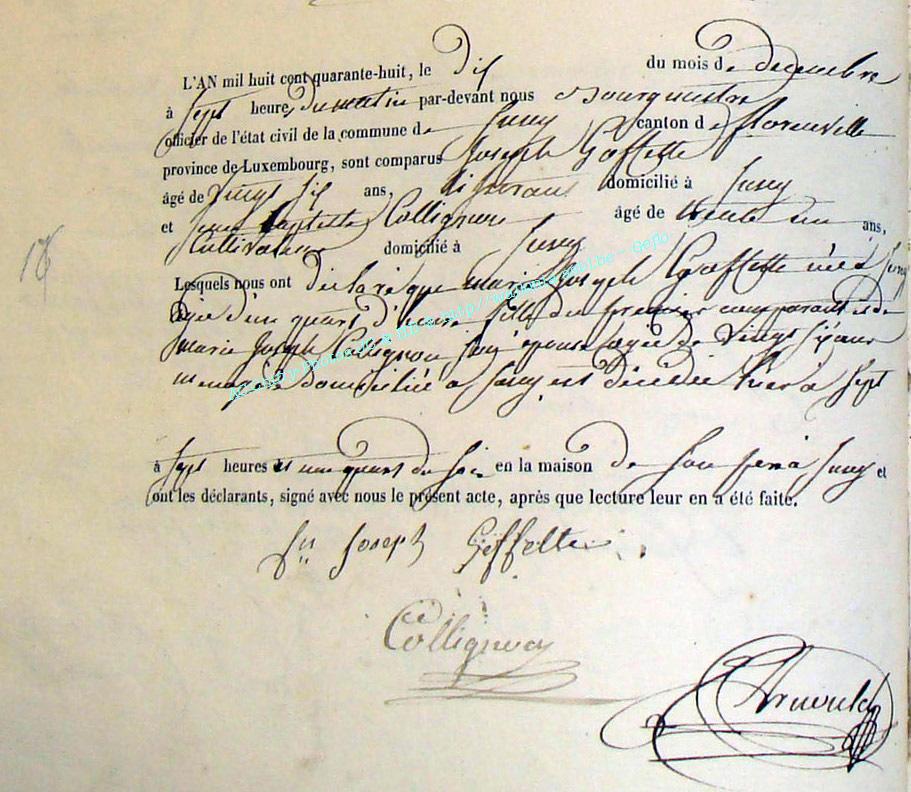 L'AN mil huit cent quarante-huit, le dix du mois de decembre
à Sept heures du matin par-devant nous Bourgmestre
officier de l'état civil de la commune de Jzel canton de florenville
province de Luxembourg, sont comparus Joseph Goffette
âgé de Vingt six ans, domicilié à
et jean Baptiste Collignon âgé de trente ans,
Cultivateur domicilié à
Lesquels nous ont declaré que marie Joseph Goffette née à
agée d'un quart d'heure fille du premier comparant et de
marie Joseph Collignon son épouse agée de Vingt six ans
menagère domiciliée à est décédée hier à Sept
à Sept heures et un quart du soir en la maison de son père à et
ont les déclarants, signé avec nous le présent acte, après que lecture leur en a été faite.
Joseph Goffette
Collignon
Arnould